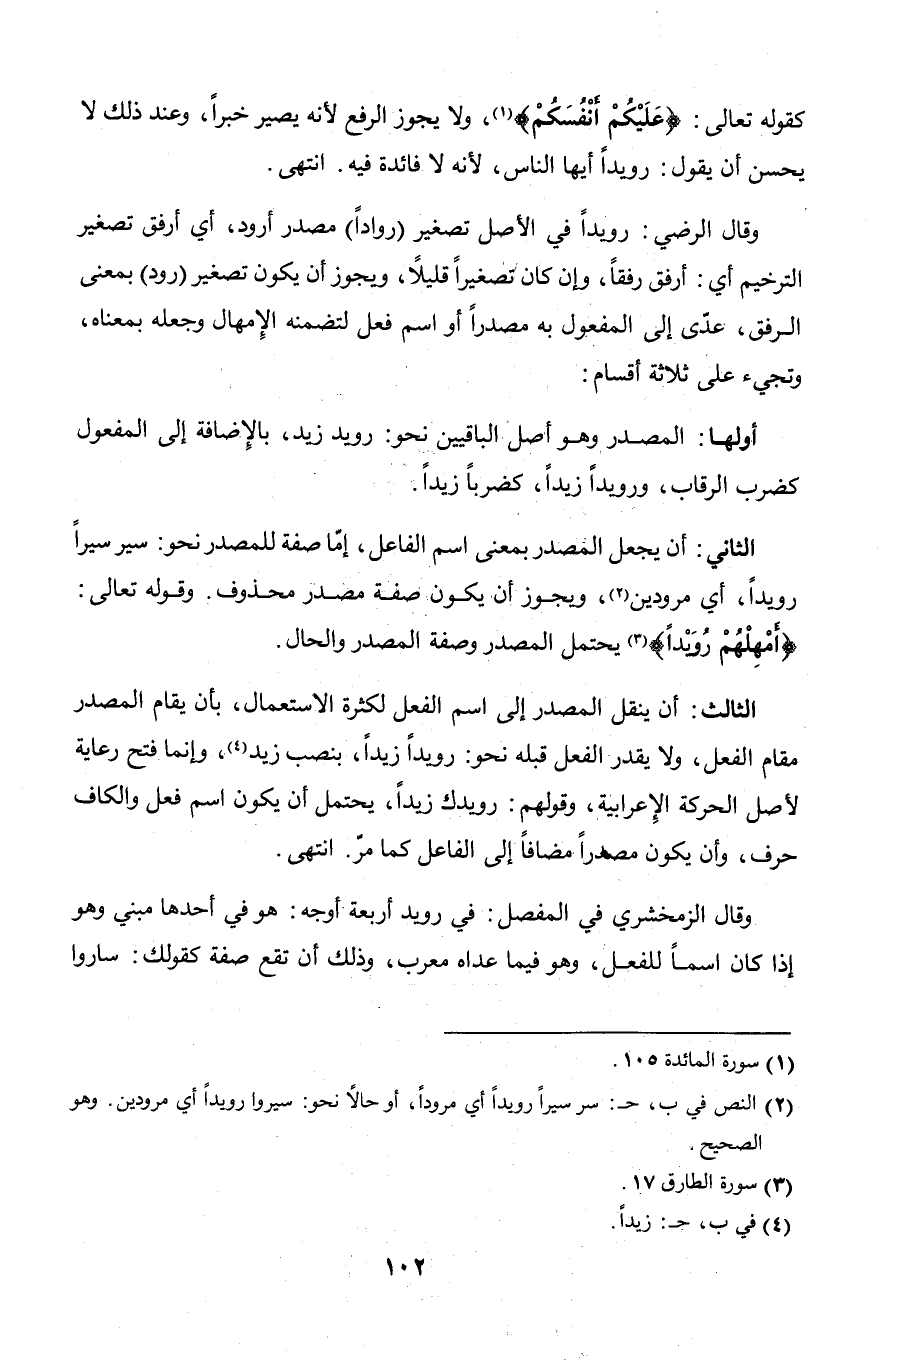 كقوله تعالى: ﴿عَلَيْكُمْ أَنْفُسَكُمْ﴾(١)، ولا يجوز الرفع لأنه يصير خبراً، وعند ذلك لا
يحسن أن يقول: رويداً أيها الناس، لأنه لا فائدة فيه. انتهى.
وقال الرضي: رويداً في الأصل تصغير (رواداً) مصدر أرود، أي أرفق تصغير
الترخيم أي: أرفق رفقاً، وإن كان تصغيراً قليلاً، ويجوز أن يكون تصغير (رود) بمعنى
الرفق، عدّى إلى المفعول به مصدراً أو اسم فعل لتضمنه الإمهال وجعله بمعناه،
وتجيء على ثلاثة أقسام:
أولها: المصدر وهو أصل الباقيين نحو: رويد زيد، بالإضافة إلى المفعول
كضرب الرقاب، ورويداً زيداً، كضرباً زيداً.
الثاني: أن يجعل المصدر بمعنى اسم الفاعل، إمّا صفة للمصدر نحو: سير سيراً
رويداً، أي مرودين(٢)، ويجوز أن يكون صفة مصدر محذوف. وقوله تعالى:
﴿أَمْهِلْهُمْ رُوَيْداً﴾(٣) يحتمل المصدر وصفة المصدر والحال.
الثالث: أن ينقل المصدر إلى اسم الفعل لكثرة الاستعمال، بأن يقام المصدر
مقام الفعل، ولا يقدر الفعل قبله نحو: رويداً زيداً، بنصب زيد(٤)، وإنما فتح رعاية
لأصل الحركة الإعرابية، وقولهم: رويدك زيداً، يحتمل أن يكون اسم فعل والكاف
حرف، وأن يكون مصدراً مضافاً إلى الفاعل كما مرّ. انتهى.
وقال الزمخشري في المفصل: في رويد أربعة أوجه: هو في أحدها مبني وهو
إذا كان اسماً للفعل، وهو فيما عداه معرب، وذلك أن تقع صفة كقولك: ساروا
(١) سورة المائدة ١٠٥.
(٢) النص في ب، حـ: سر سيراً رويداً أي مروداً، أو حالاً نحو: سيروا رويداً أي مرودين. وهو
الصحيح.
(٣) سورة الطارق ١٧.
(٤) في ب، حـ: زيداً.
١٠٢